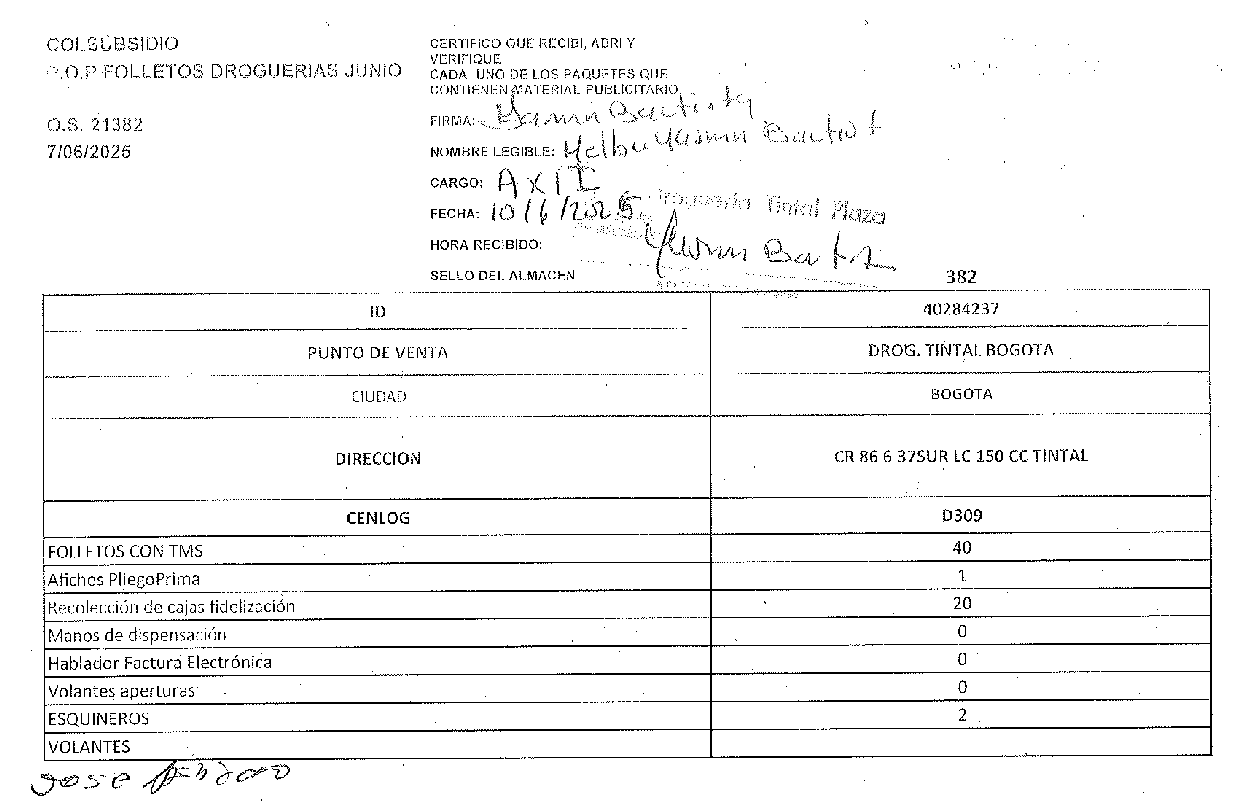 COLSUBSIDIO
P.O.P FOLLETOS DROGUERIAS JUNIO
O.S. 21382
7/06/2025
CERTIFICO QUE RECIBI, ABRI Y
VERIFIQUE
CADA UNO DE LOS PAQUETES QUE
CONTIENEN MATERIAL PUBLICITARIO
FIRMA: Bautista
NOMBRE LEGIBLE: Bautist
CARGO: AXII
FECHA: 10/6/2025
Tintal Plaza
HORA RECIBIDO:
SELLO DEL ALMACEN
382
ID 40284237
PUNTO DE VENTA DROG. TINTAL BOGOTA
CIUDAD BOGOTA
DIRECCION CR 86 6 37SUR LC 150 CC TINTAL
CENLOG D309
FOLLETOS CON TMS 40
Afiches PliegoPrima 1
Recolección de cajas fidelización 20
Manos de dispensación 0
Hablador Factura Electrónica 0
Volantes aperturas 0
ESQUINEROS 2
VOLANTES
Jose